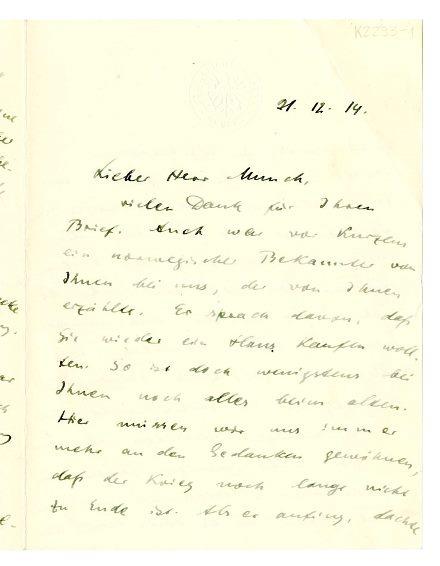 K2233-1
21. 12. 14.
Lieber Herr Munch,
vielen Dank für Ihren
Brief. Auch war vor Kurzem
ein norwegischer Bekannter von
Ihnen bei uns, der von Ihnen
erzählte. Er sprach davon, daß
Sie wieder ein Haus kaufen woll-
ten. So ist doch wenigstens bei
Ihnen noch alles beim alten.
Hier müssen wir uns immer
mehr an den Gedanken gewöhnen,
daß der Krieg noch lange nicht
zu Ende ist. Als er anfing, dachte